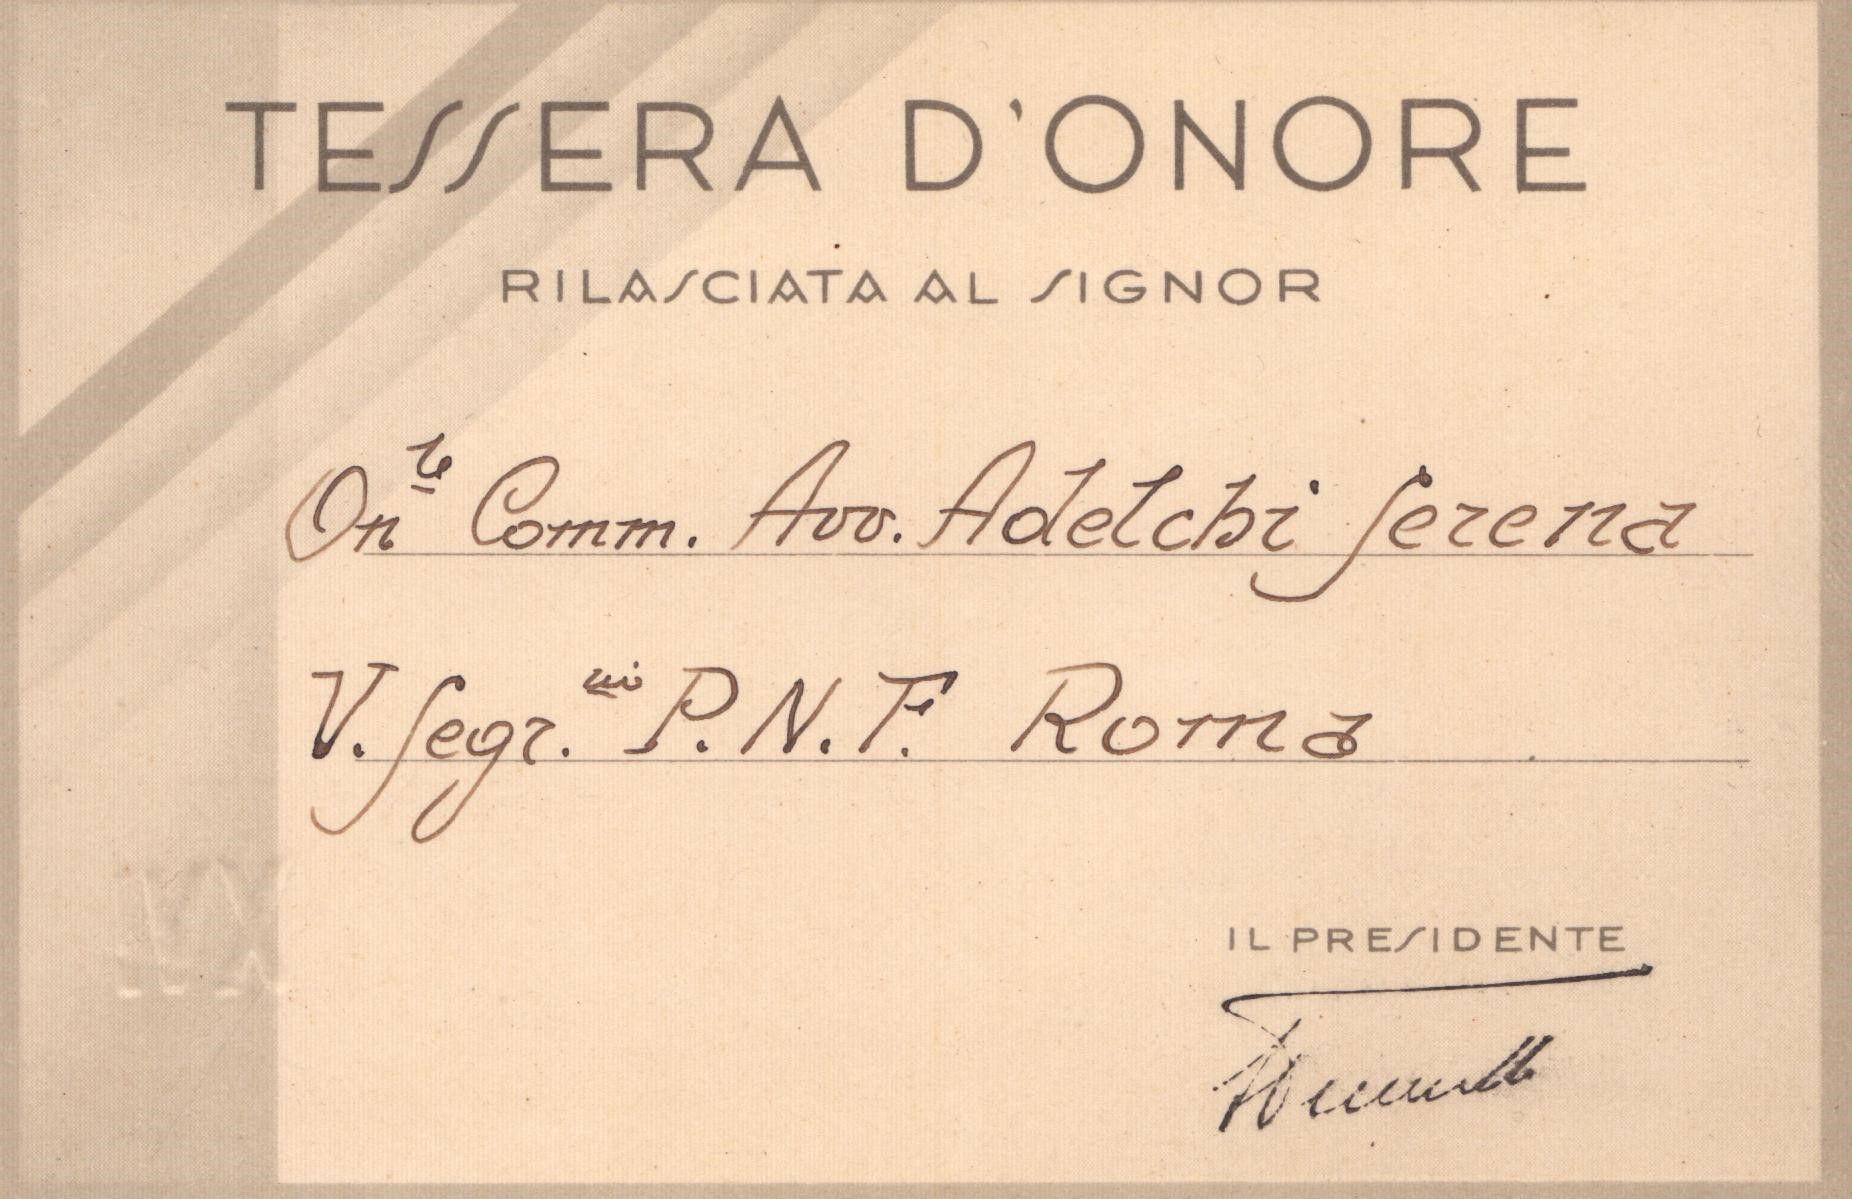 TESSERA D'ONORE
RILASCIATA AL SIGNOR
On.le Comm. Avv. Adelchi Serena
V. Segr. P.N.F. Roma
IL PRESIDENTE